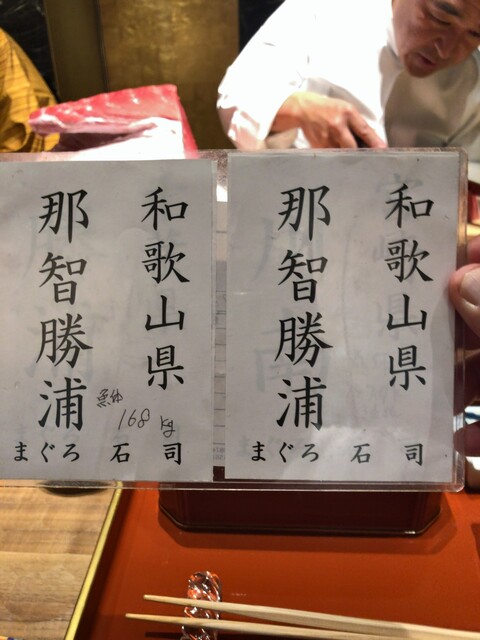 和歌山県
那智勝浦
魚体
168 kg
まぐろ 石司
和歌山県
那智勝浦
まぐろ 石司